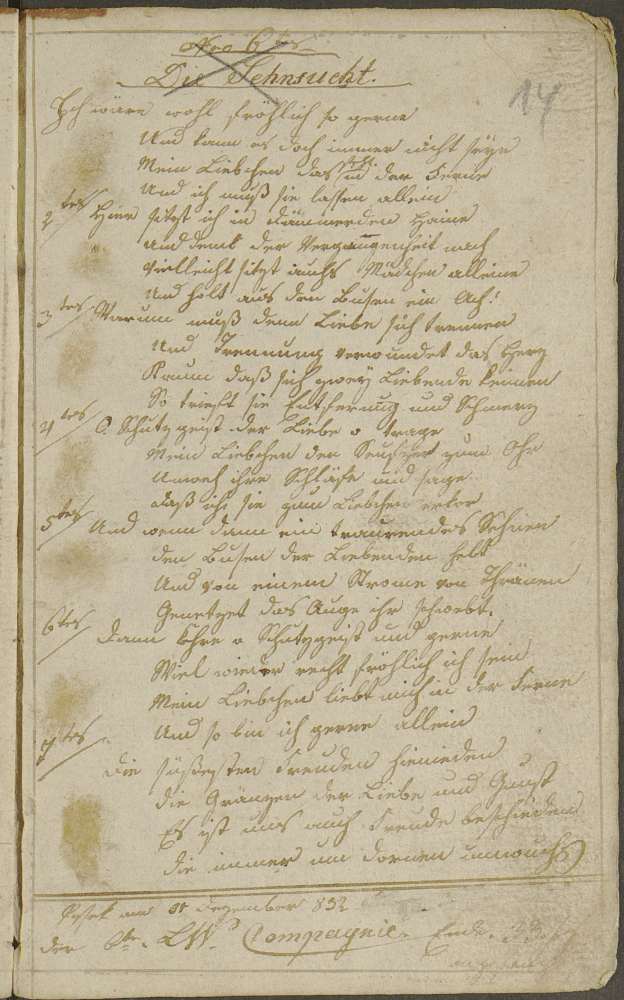 Nro 6tes
Die Sehnsucht.
14
Ich wäre wohl fröhlich so gerne
Und kann es doch immer nicht seyn
Mein Liebchen das ist in der Ferne
Und ich muß sie lassen allein
2tes Hier sitzt ich in dämmerden Haine
Und denk der Vergangenheit nach
Vielleicht sitzt auchs Mädchen alleine
Und holt aus den Busen ein Ach!
3tes Warum muß denn Liebe sich trennen
Und Trennung verwundet das Herz
Kaum daß sich zwey Liebende kennen
So trieft sie Entfernung und Schmerz
4tes O. Schutzgeist der Liebe o trage
Mein Liebchen den Seufzer zum Ohr
Umweh ihre Schläfe und sage
daß ich sie zum Liebchen erkor
5tes Und wenn dann ein traurendes Sehnen
den Busen der Liebenden hebt
Und von einem Strome von Thränen
Genetzet das Auge ihr schwebt.
6tes Dann kehre o Schutzgeist und gerne
Will wieder recht fröhlich ich sein
Mein Liebchen liebt mich in der Ferne
Und so bin ich gerne allein
7tes Die süßesten Freuden hienieden
die Gränzen der Liebe und Gunst
Es ist uns auch Freude beschieden
Die immer um dornen
am 31 Dezember 832
der 6te. Compagnie. Ende.